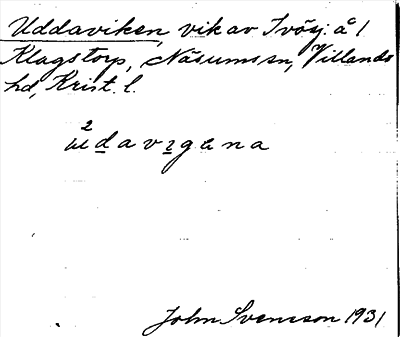 Uddaviken, vik av Ivösj. å /
Klagstorp, Näsums sn, Villands
hd, Krist. l.
John Svensson 1931